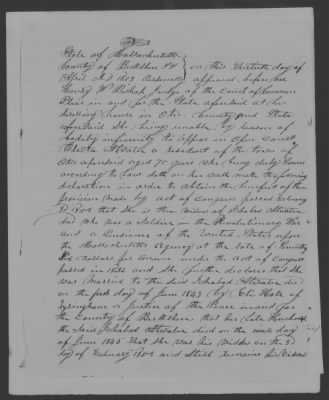 State of Massachusetts
County of Berkshire SS } on this Thirteenth day of
April AD 1853 personally appeared before me
Henry W Bishop Judge of the Court of Common
Pleas in and for the State aforesaid at her
dwelling house in Otis County and State
aforesaid She being unable by reason of
bodily infirmity to appear in open Court
Electa Atwater a resident of the town of
Otis aforesaid aged 75 years who being duly sworn
according to Law doth on her oath make the following
declaration in order to obtain the benefit of the
provision made by act of Congress passed February
3d 1853 that she is the widow of Ichabod Atwater
who was a Soldier in the Revolutionary War
and a Pensioner of the United States upon
the Massachusetts Agency at the rate of Twenty
Dollars per Annum under the act of Congress
passed in 1832 and she further declares that she
was married to the said Ichabod Atwater
on the first day of June 1843 by Eli Hale of
Tyringham a Justice of the Peace in and for
the County of Berkshire that her late Husband
the said Ichabod Atwater died on the day
of June 1845 That she was his Widow on the 3d
day of February 1853 and still remains his Widow